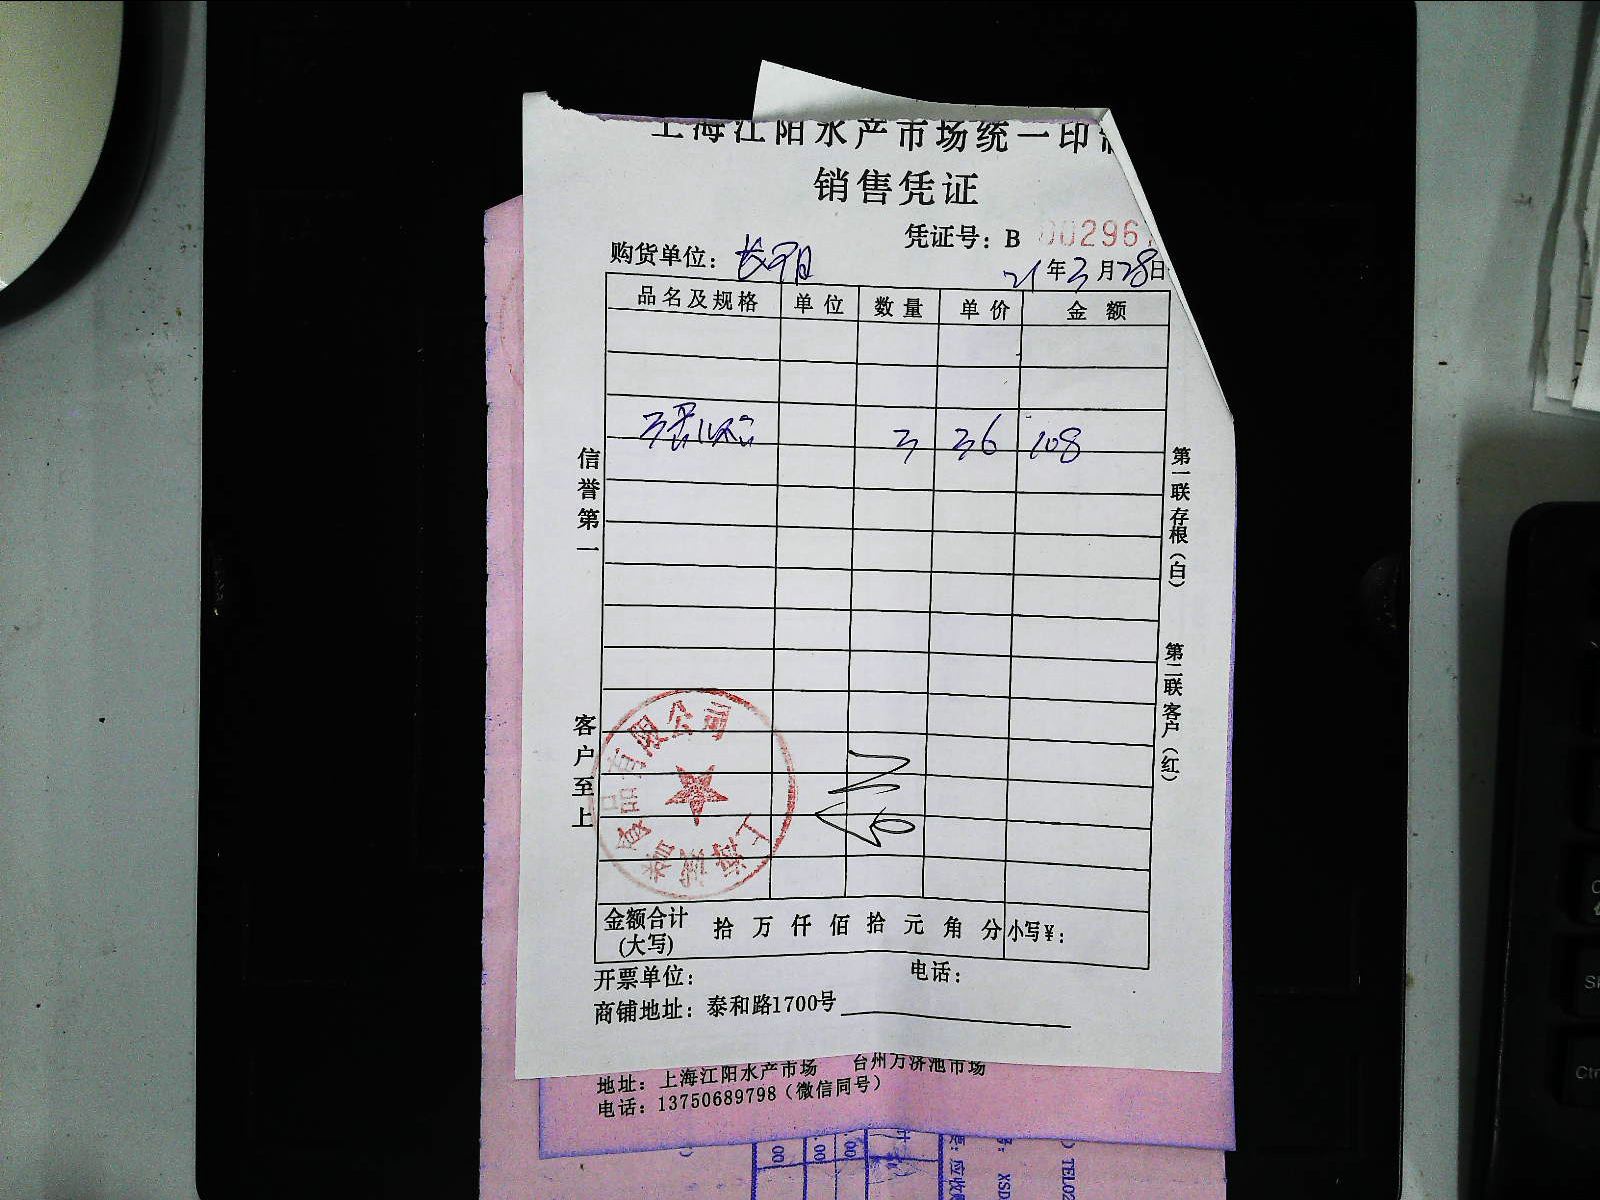 上海江阳水产市场统一印
销售凭证
凭证号：B 002967
购货单位：
21年3月28日
品名及规格 单位 数量 单价 金额
3 36 108
信誉第一
客户至上
第一联存根（白）
第二联客户（红）
食品有限公司
上海
金额合计(大写) 拾 万 仟 佰 拾 元 角 分 小写￥：
开票单位： 电话：
商铺地址：泰和路1700号
地址：上海江阳水产市场 台州万济池市场
电话：13750689798（微信同号）
00 00 00
应收
XSD
TEL02
Ctr